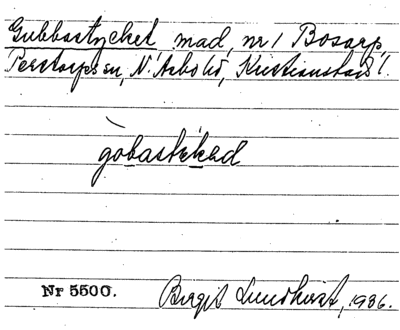 Gubbastycket mad, nr 1 Bosarp,
Perstorps sn, N. Åsbo hd, Kristianstads l.
gòbastekad
Nr 5500. Birgit Lundkvist, 1936.